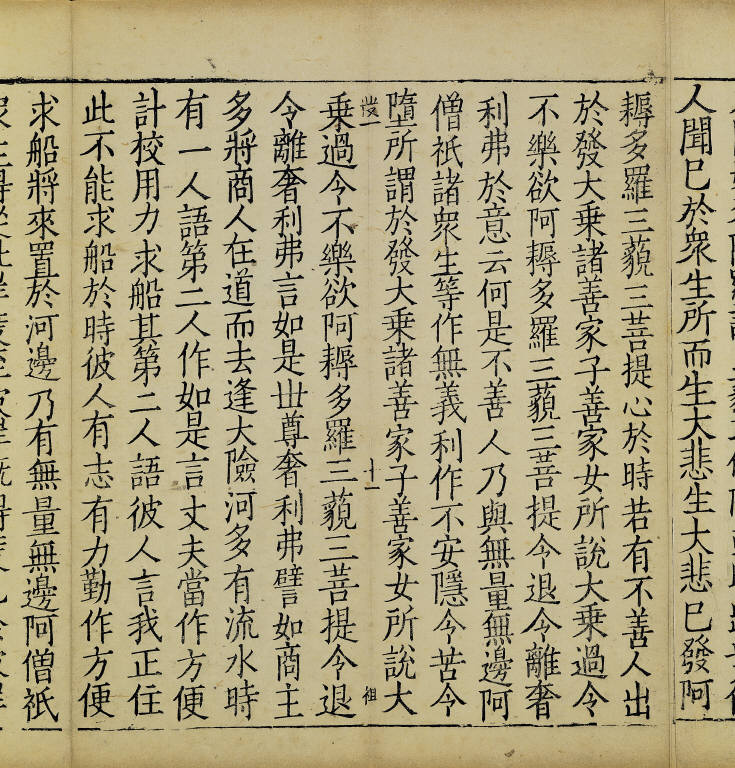 人聞已於衆生所而生大悲生大悲已發阿
耨多羅三藐三菩提心於時若有不善人出
於發大乘諸善家子善家女所說大乘過令
不樂欲阿耨多羅三藐三菩提令退令離奢
利弗於意云何是不善人乃與無量無邊阿
僧祇諸衆生等作無義利作不安隱令苦令
墮所謂於發大乘諸善家子善家女所說大
十一
祖
乘過令不樂欲阿耨多羅三藐三菩提令退
令離奢利弗言如是世尊奢利弗譬如商主
多將商人在道而去逢大險河多有流水時
有一人語第二人作如是言丈夫當作方便
計校用力求船其第二人語彼人言我正住
此不能求船於時彼人有志有力勤作方便
求船將來置於河邊乃有無量無邊阿僧祇